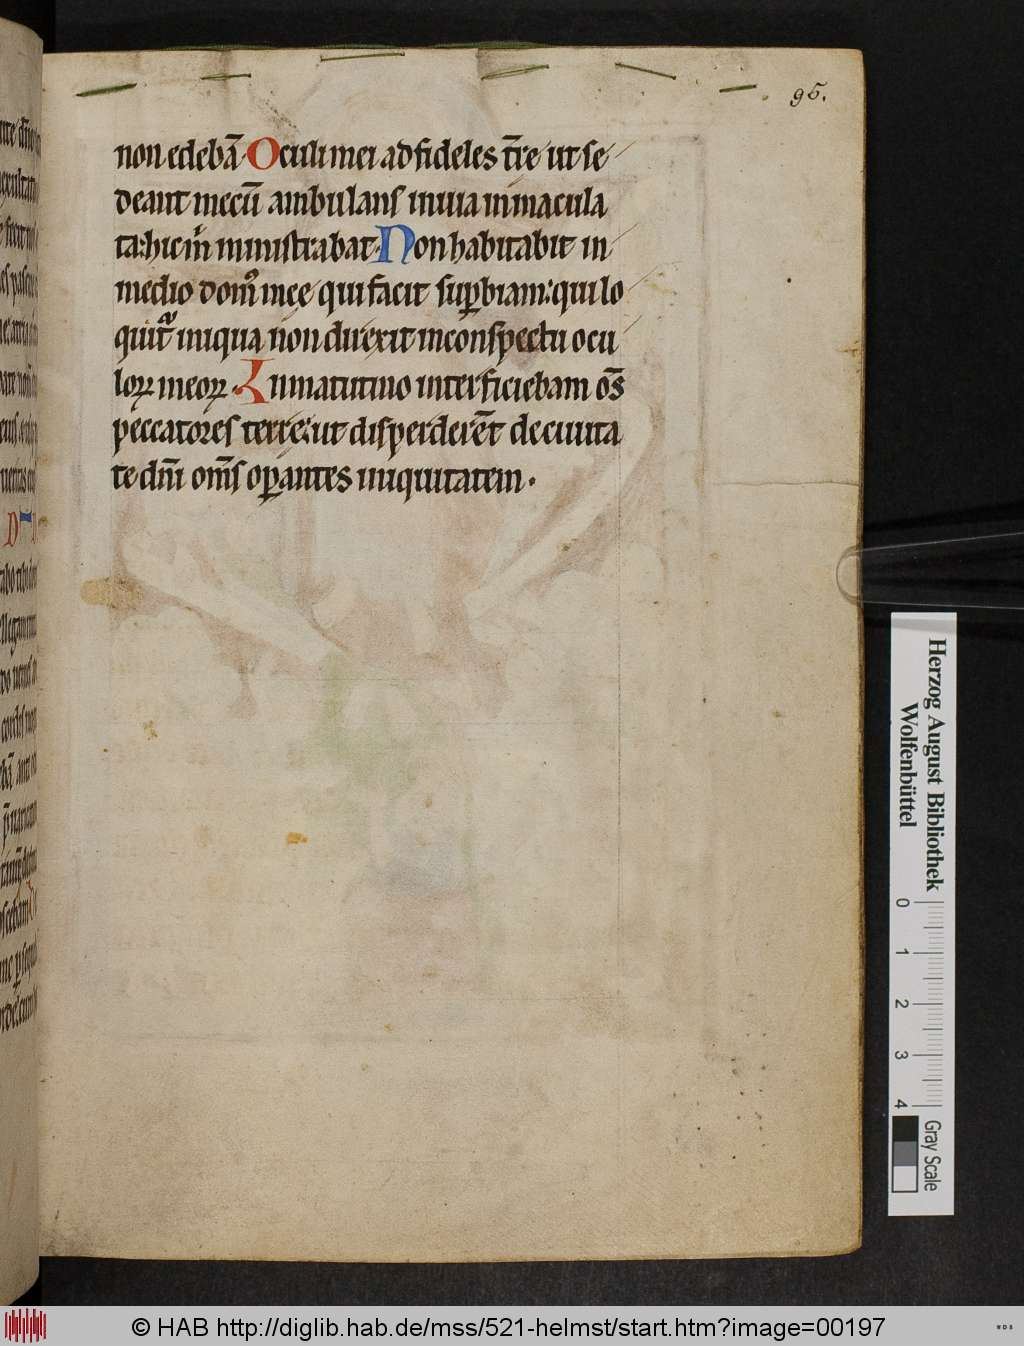 95.
non edebā. Oculi mei ad fideles t̄re ut se
deant mecū ambulans in uia inmacula
ta: hic m̄ ministrabat. Non habitabit in
medio dom᷒ mee qui facit sup̄biam: qui lo
quit᷑ iniqua non direxit in conspectu ocu
loꝝ meoꝝ. In matutino interficiebam om̄s
peccatores terre: ut disperderēt de ciuita
te dn̄i om̄s oꝑantes iniquitatem.
Herzog August Bibliothek
Wolfenbüttel
0 1 2 3 4
Gray Scale
© HAB http://diglib.hab.de/mss/521-helmst/start.htm?image=00197